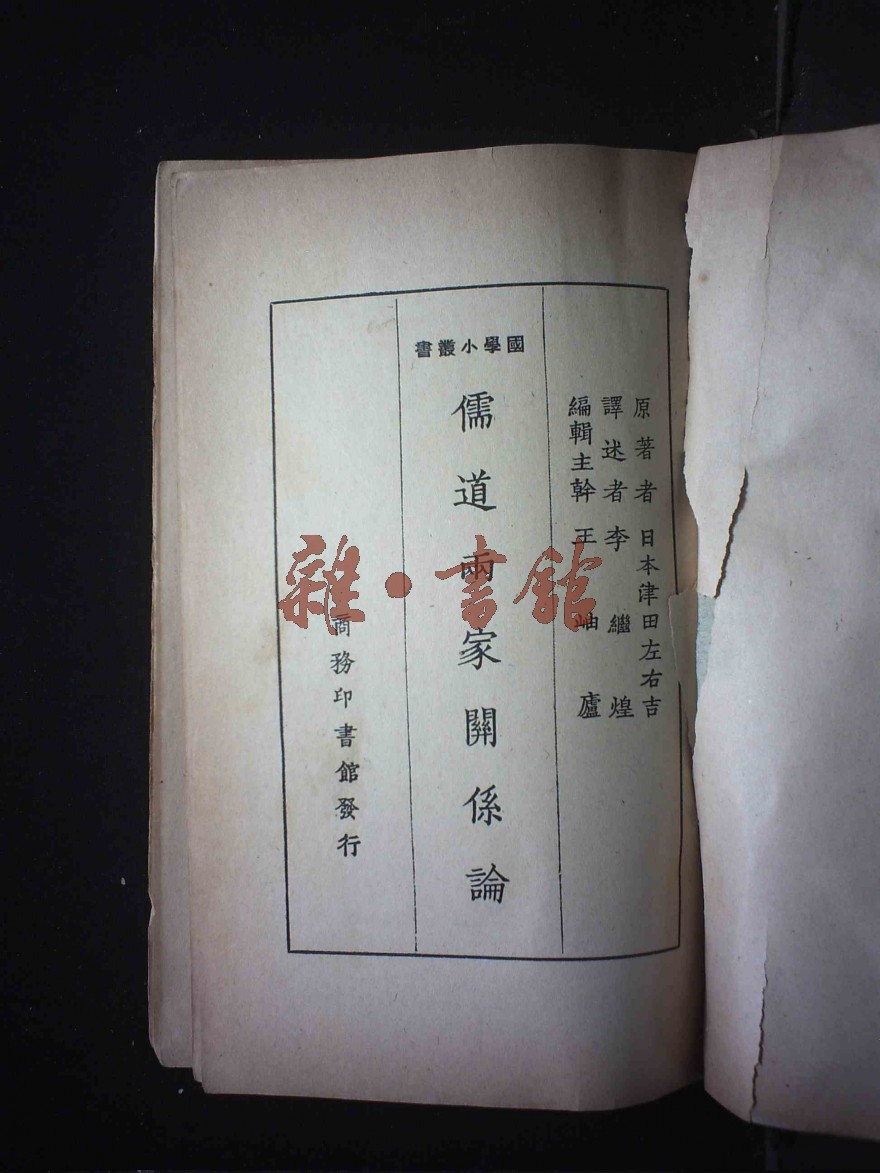 原著者 日本津田左右吉
譯述者 李繼煌
編輯主幹 王岫廬
國學小叢書
儒道兩家關係論
商務印書館發行
雜·書館